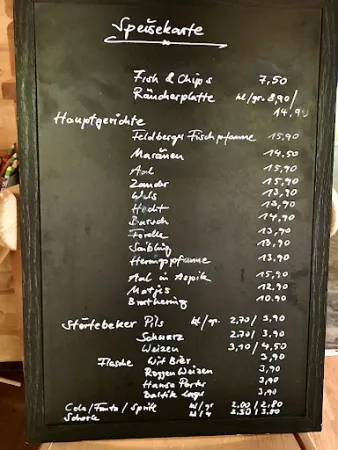 Speisekarte
Fish & Chips 7,50
Räucherplatte kl/gr. 8,90/
14,90
Hauptgerichte
Feldberger Fischpfanne 15,90
Maränen 14,50
Aal 15,90
Zander 15,90
Wels 13,90
Hecht 13,90
Barsch 14,90
Forelle 13,90
Saibling 13,90
Heringspfanne 13,90
Aal in Aspik 15,90
Matjes 12,90
Brathering 10,90
Störtebeker Pils kl/gr. 2,70/3,90
Schwarz 2,70/3,90
Weizen 3,10/4,50
Flasche Wit Bier 3,90
Roggen Weizen 3,90
Hanse Porter 3,90
Baltik Lager 3,90
Cola/Fanta/Sprite kl/gr 2.00/2.80
Schorle kl/gr 2.50/3.80